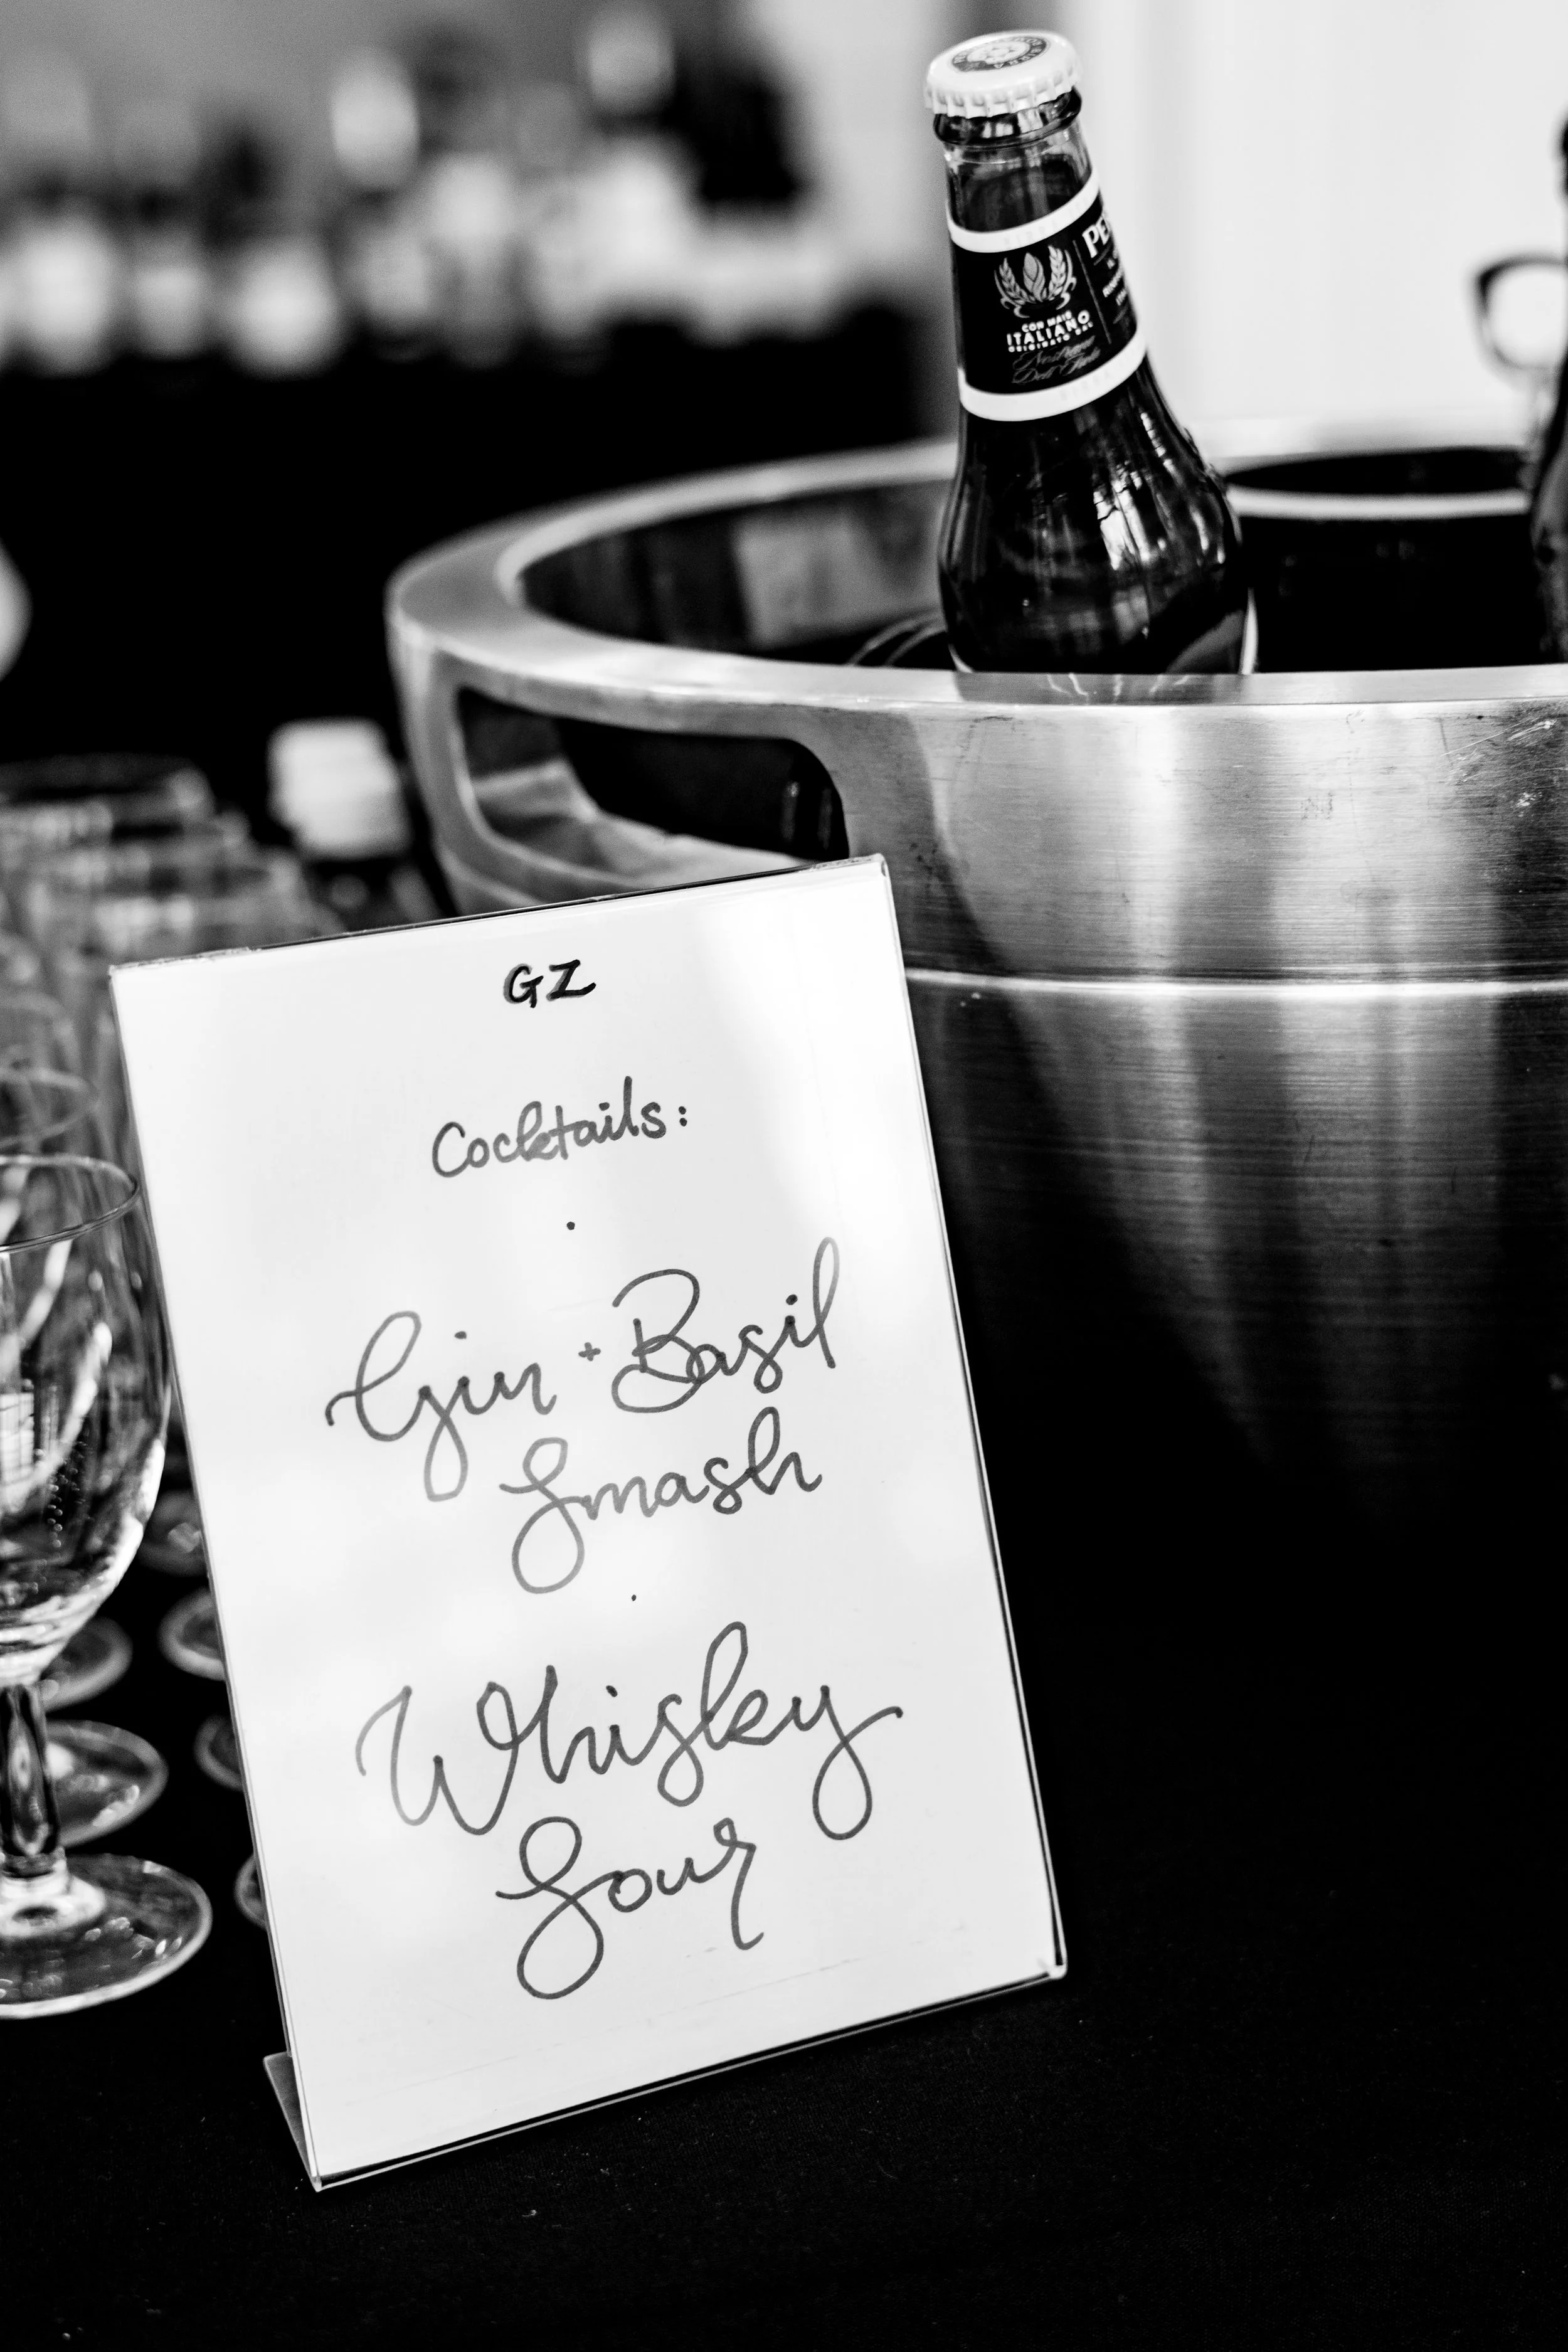 PE
CON MAIS
ITALIANO
GZ
Cocktails:
·
Gin + Basil
Smash
·
Whisky
Sour